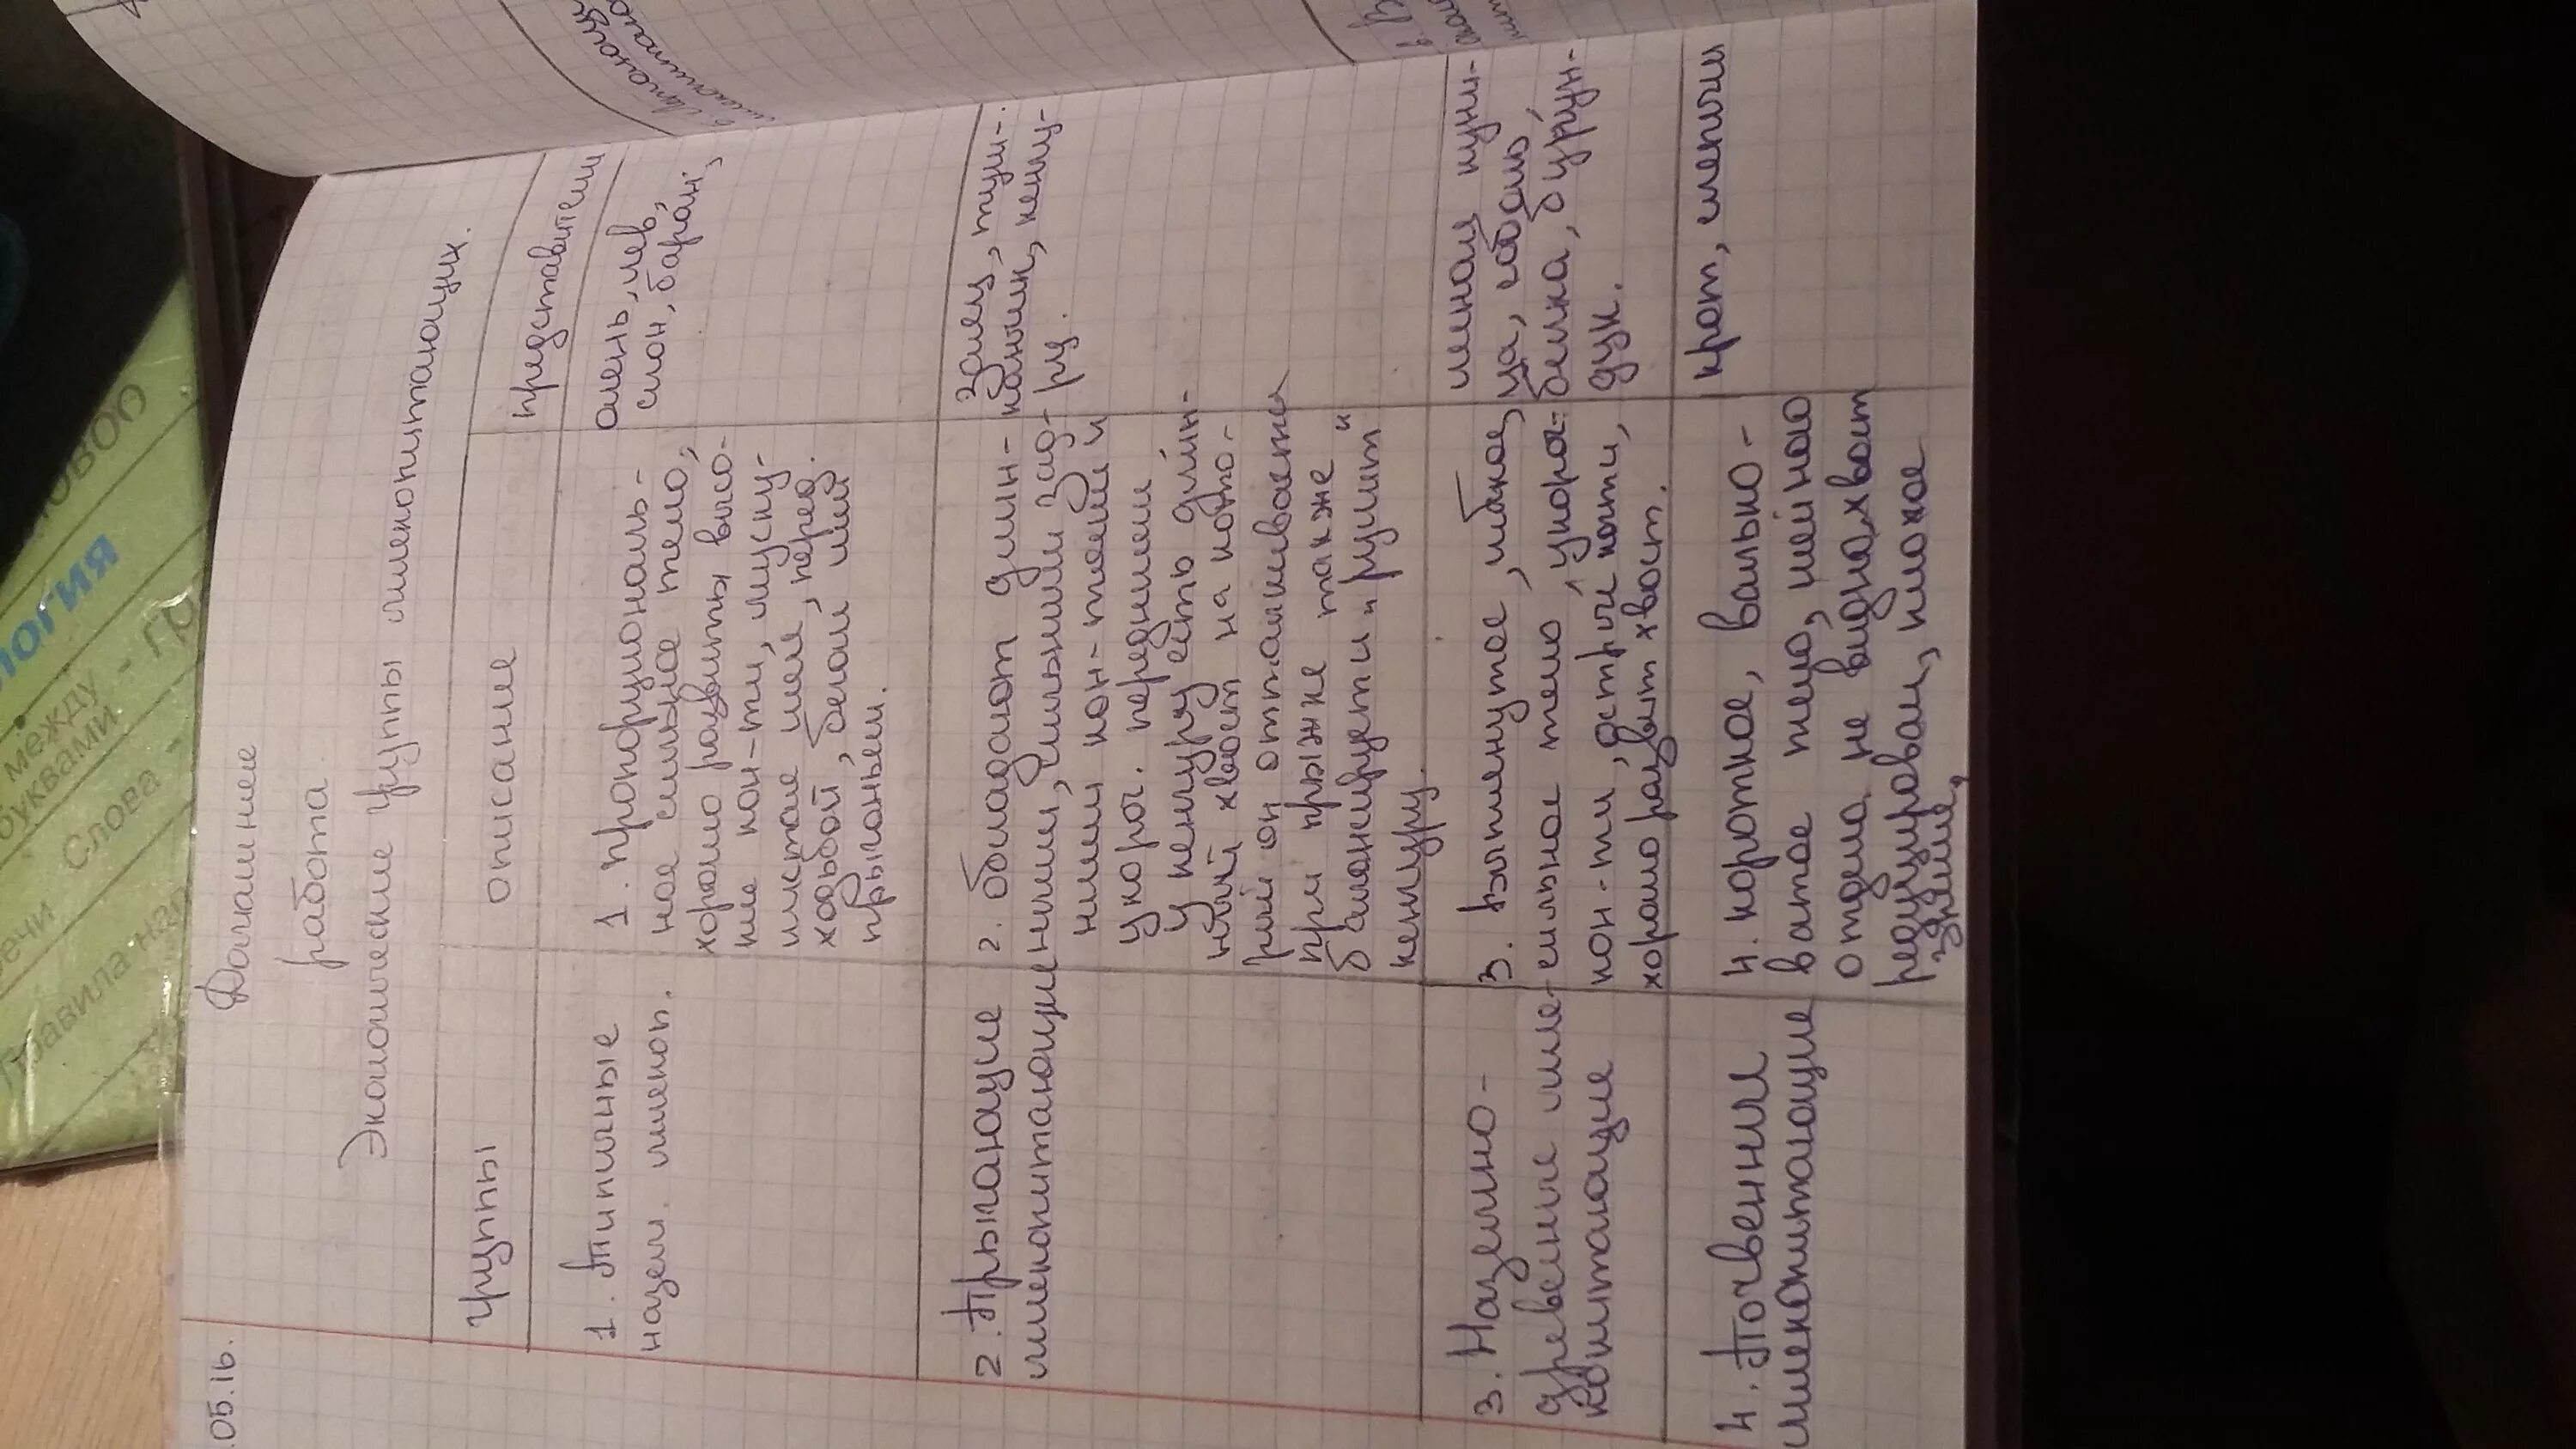 .05.16.
Домашнее
работа.
Экологические групы млекопитающих.
групы
описание
представители
1. Типичные
назем. млекоп.
1. пропорциональ-
ное сильное тело,
хорошо развиты высо-
кие кон-ти, муску-
листая шея, перед.
ходьбой, бегом или
прыганьем.
олень, лев,
слон, баран,
2. Прыгающие
млекопитающие
2. Обладают длин-
ными, сильными зад-
ними кон-тями и
укороч. передними
у кенгуру есть длин-
ный хвост на кото-
рый он отталкивается
при прыжке также
балансирует и "рулит"
кенгуру.
Заяц, туш-
канчик, кенгу-
ру.
3. Наземно-
древесные мле-
копитающие
3. вытянутое, гибкое,
сильное тело, укороч.
кон-ти, острые когти,
хорошо развит хвост.
лесная куни-
ца, соболь,
белка, бурун-
дук.
4. Почвенныи
млекопитающие
4. короткое, валько-
ватое тело, шейного
отдела не видна, хвост
редуцирован, плохое
зрние,
крот, слепыш
логия
между
буквами
Слова
речи
Правила